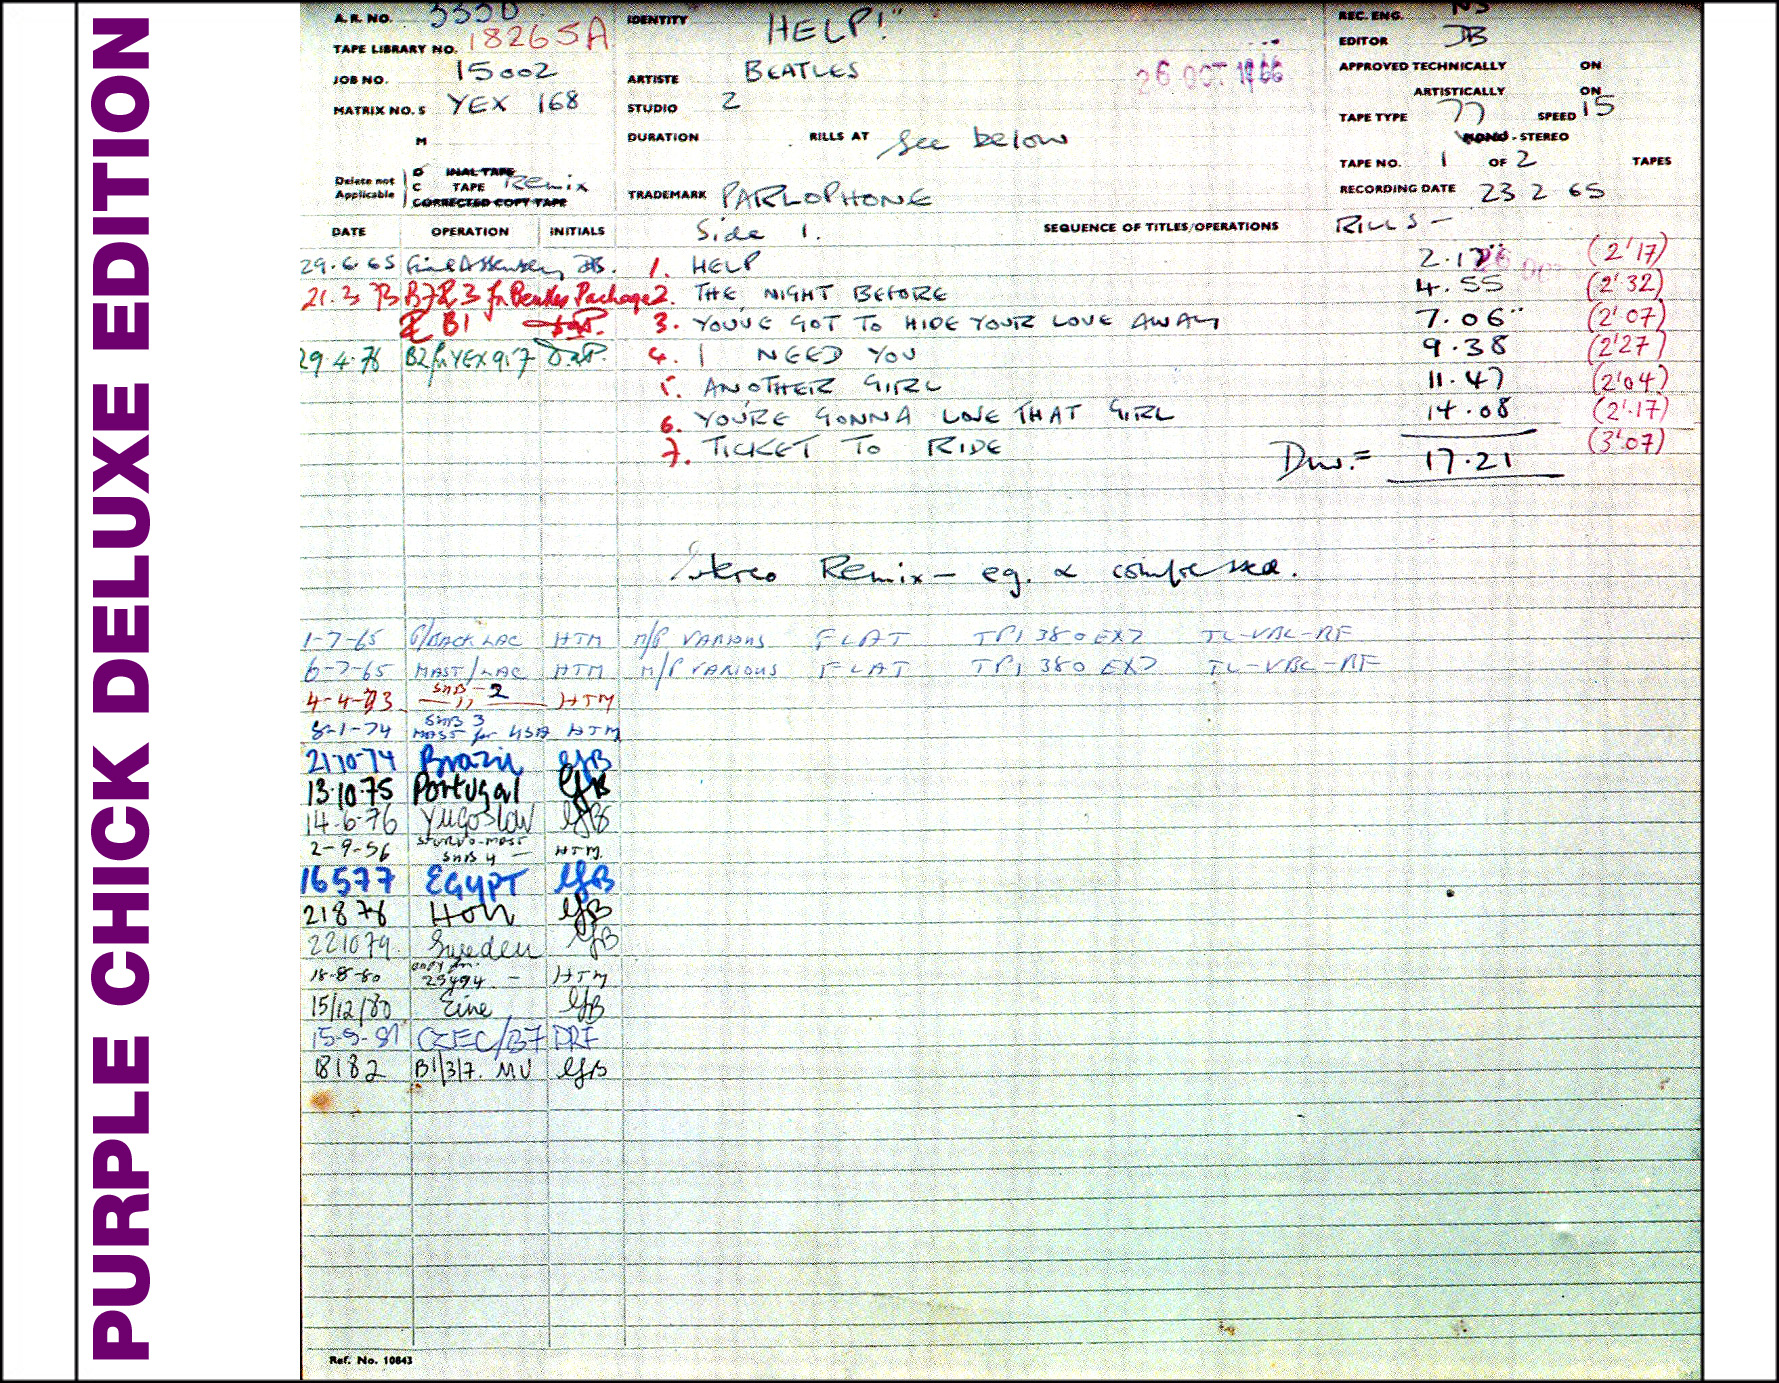 PURPLE CHICK DELUXE EDITION
A.R. NO. 3550
TAPE LIBRARY NO. 18265A
JOB NO. 15002
MATRIX NO. S YEX 168
M
Delete not Applicable
INAL TAPE
C TAPE Remix
CORRECTED COPY TAPE
IDENTITY HELP!"
ARTISTE BEATLES
26 OCT 1966
STUDIO 2
DURATION RILLS AT See below
TRADEMARK PARLOPHONE
REC. ENG. NS
EDITOR JB
APPROVED TECHNICALLY ON
ARTISTICALLY ON
TAPE TYPE 77 SPEED 15
MONO - STEREO
TAPE NO. 1 OF 2 TAPES
RECORDING DATE 23 2 65
DATE OPERATION INITIALS Side 1. SEQUENCE OF TITLES/OPERATIONS RILLS -
29.6.65 Final Assembly JB. 1. HELP 2.17" (2'17)
21.3 73 B7 & 3 for Beatles Package 2. THE NIGHT BEFORE 4.55 (2'32)
B1 3. YOU'VE GOT TO HIDE YOUR LOVE AWAY 7.06" (2'07)
29.4.76 B2 for YEX 917 4. I NEED YOU 9.38 (2'27)
5. ANOTHER GIRL 11.47 (2'04)
6. YOU'RE GONNA LOSE THAT GIRL 14.08 (2'.17)
7. TICKET TO RIDE (3'.07)
Dur. = 17.21
Stereo Remix - eq. & compressed.
1-7-65 P/BACK LAC HTM M/P VARIOUS FLAT TP1 380 EX7 TL-VBL-RF
6-7-65 MAST/LAC HTM M/P VARIOUS FLAT TP1 380 EX7 TL-VBL-RF
4-4-73 SMB - 2 HTM
8-1-74 SMB 3 MAST for USA HTM
21 10 74 Brazil GJB
13.10.75 Portugal GJB
14-6-76 Yugoslav GJB
2-9-56 SMB 4 - HTM.
16577 EGYPT GJB
21876 Holl GJB
221079. Sweden GJB
18-8-80 copy for 25494 - HTM
15/12/80 Eire GJB
15-9-81 CZEC/B7 PRF
18182 B1/3/7. MU GJB
Ref. No. 10843